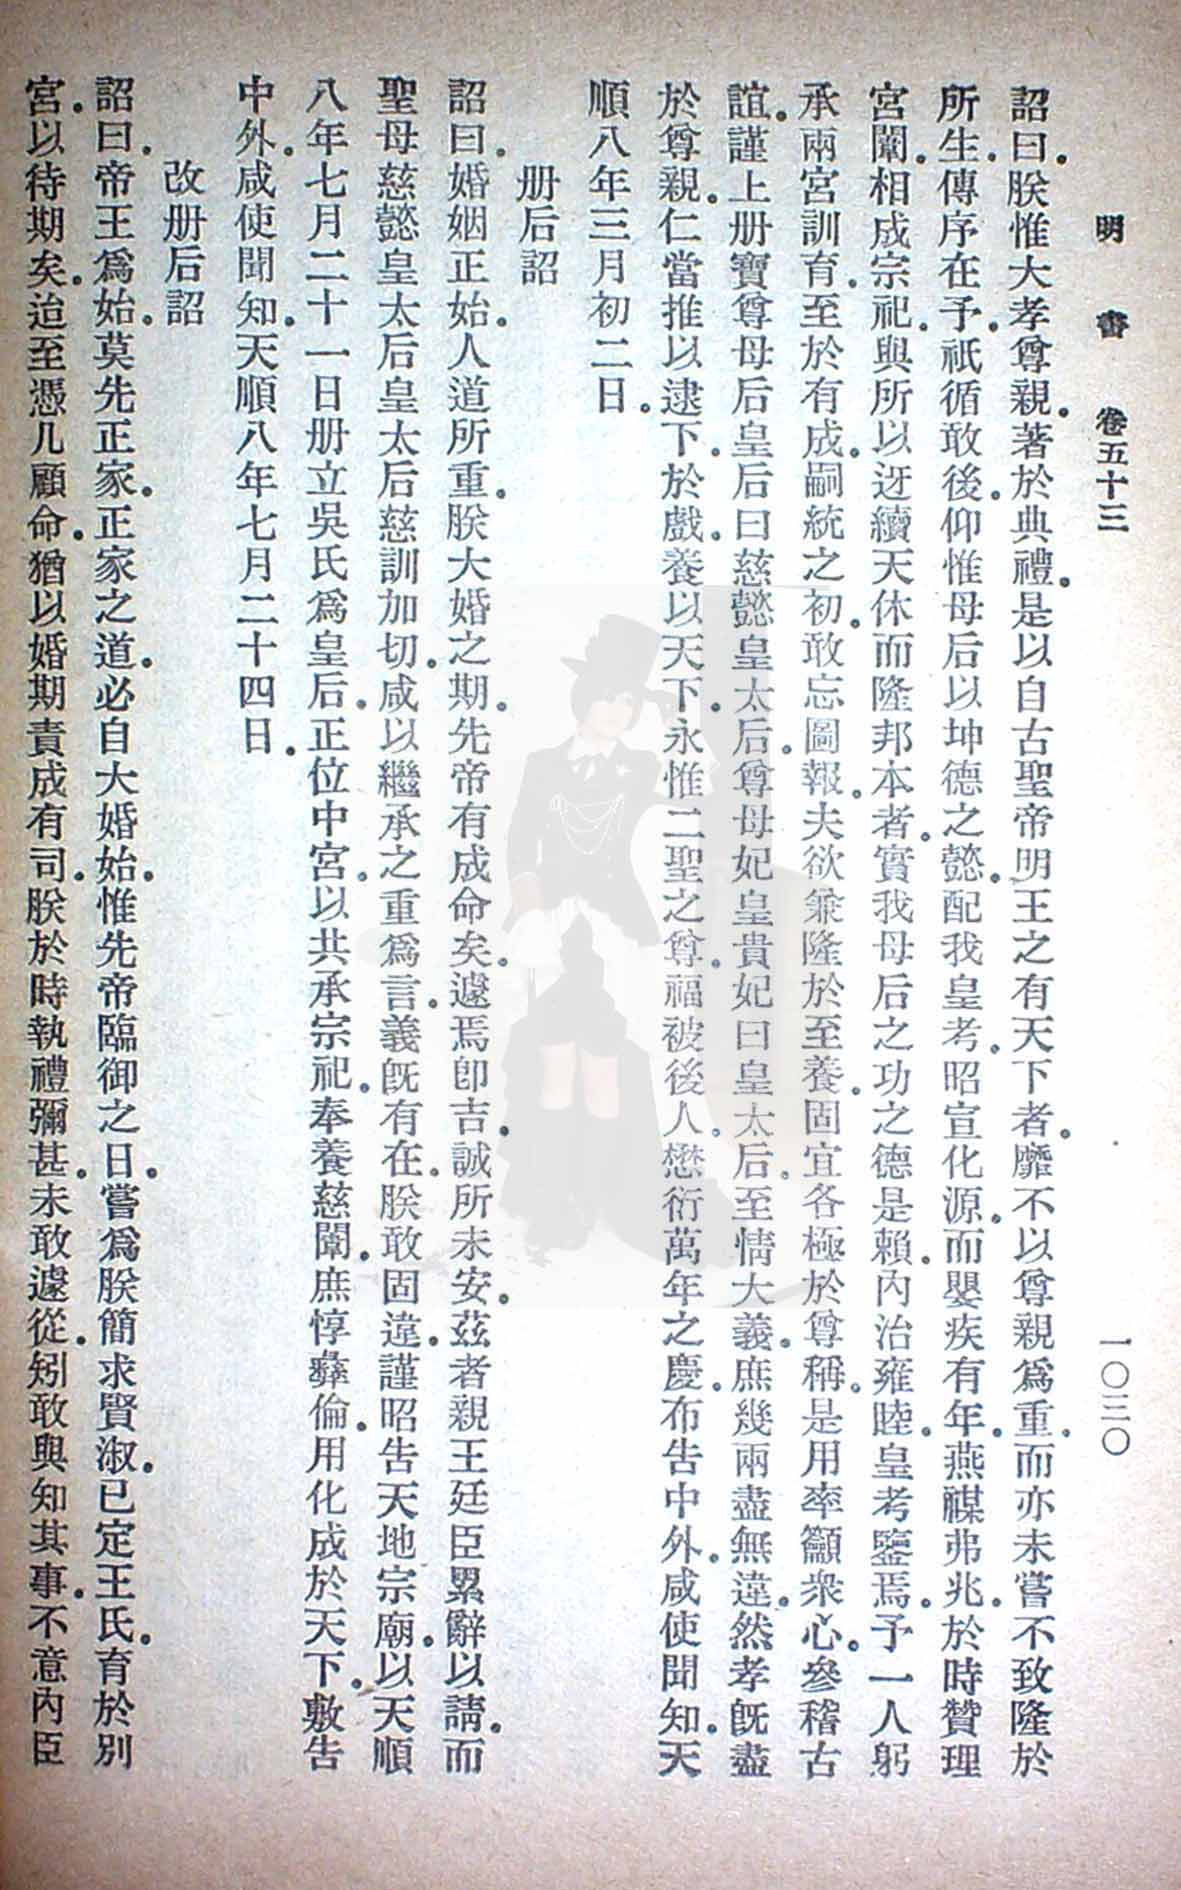 明 書 卷五十三 一〇三〇
詔曰。朕惟大孝尊親。著於典禮。是以自古聖帝明王之有天下者。靡不以尊親爲重。而亦未嘗不致隆於
所生。傳序在予。祇循敢後。仰惟母后以坤德之懿。配我皇考。昭宣化源。而嬰疾有年。燕禖弗兆。於時贊理
宮闈。相成宗祀。與所以迓續天休而隆邦本者。實我母后之功之德是賴。內治雍睦。皇考鑒焉。予一人躬
承兩宮訓育。至於有成。嗣統之初。敢忘圖報。夫欲兼隆於至養。固宜各極於尊稱。是用率籲衆心。參稽古
誼。謹上册寶尊母后皇后曰慈懿皇太后。尊母妃皇貴妃曰皇太后。至情大義。庶幾兩盡無違。然孝旣盡
於尊親。仁當推以逮下。於戲。養以天下。永惟二聖之尊。福被後人。懋衍萬年之慶。布告中外。咸使聞知。天
順八年三月初二日。
册后詔
詔曰。婚姻正始。人道所重。朕大婚之期。先帝有成命矣。遽焉卽吉。誠所未安。茲者親王廷臣累辭以請。而
聖母慈懿皇太后皇太后慈訓加切。咸以繼承之重爲言。義旣有在。朕敢固違。謹昭告天地宗廟。以天順
八年七月二十一日册立吳氏爲皇后。正位中宮。以共承宗祀。奉養慈闈。庶惇彝倫。用化成於天下。敷告
中外。咸使聞知。天順八年七月二十四日。
改册后詔
詔曰。帝王爲始。莫先正家。正家之道。必自大婚始。惟先帝臨御之日。嘗爲朕簡求賢淑。已定王氏。育於別
宮。以待期矣。迨至憑几顧命。猶以婚期責成有司。朕於時執禮彌甚。未敢遽從。矧敢與知其事。不意內臣